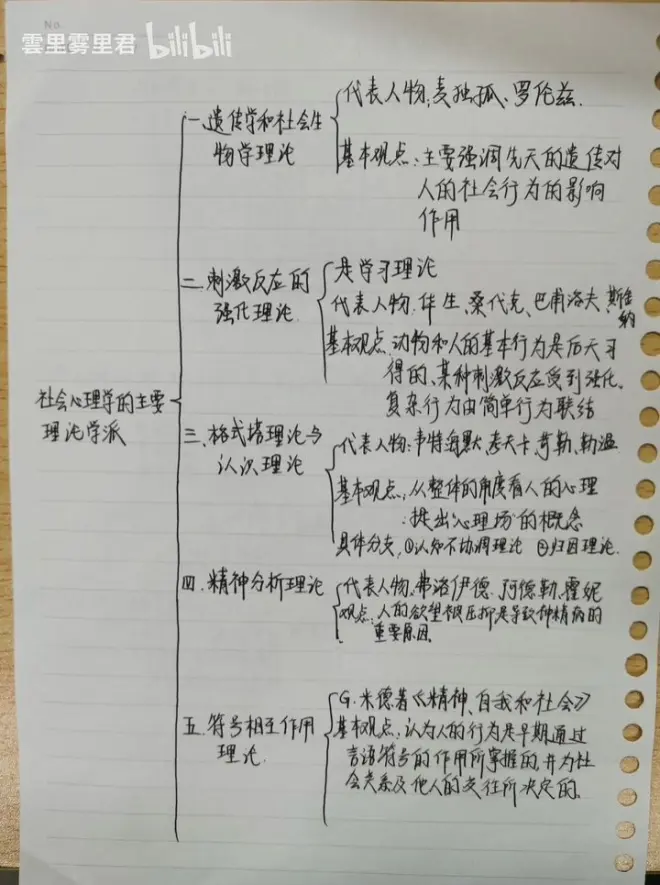 No.
雲里雾里君 bilibili
社会心理学的主要
理论学派
一.遗传学和社会生
物学理论
代表人物:麦独孤、罗伦兹.
基本观点:主要强调先天的遗传对
人的社会行为的影响
作用
二.刺激反应的
强化理论.
是学习理论
代表人物.华生、桑代克、巴甫洛夫、斯金纳
基本观点.动物和人的基本行为是后天习
得的、某种刺激反应受到强化、
复杂行为由简单行为联结
三.格式塔理论与
认识理论
代表人物:韦特海默、考夫卡、苛勒、勒温
基本观点,从整体的角度看人的心理
:提出“心理场”的概念
具体分支,①认知不协调理论 ②归因理论.
四.精神分析理论
代表人物.弗洛伊德.阿德勒、霍妮
观点:人的欲望被压抑是导致神精病的
重要原因.
五.符号相互作用
理论.
G.米德著《精神、自我和社会》
基本观点:认为人的行为是早期通过
言语符号的作用所掌握的,并为社
会关系及他人的交往所决定的.